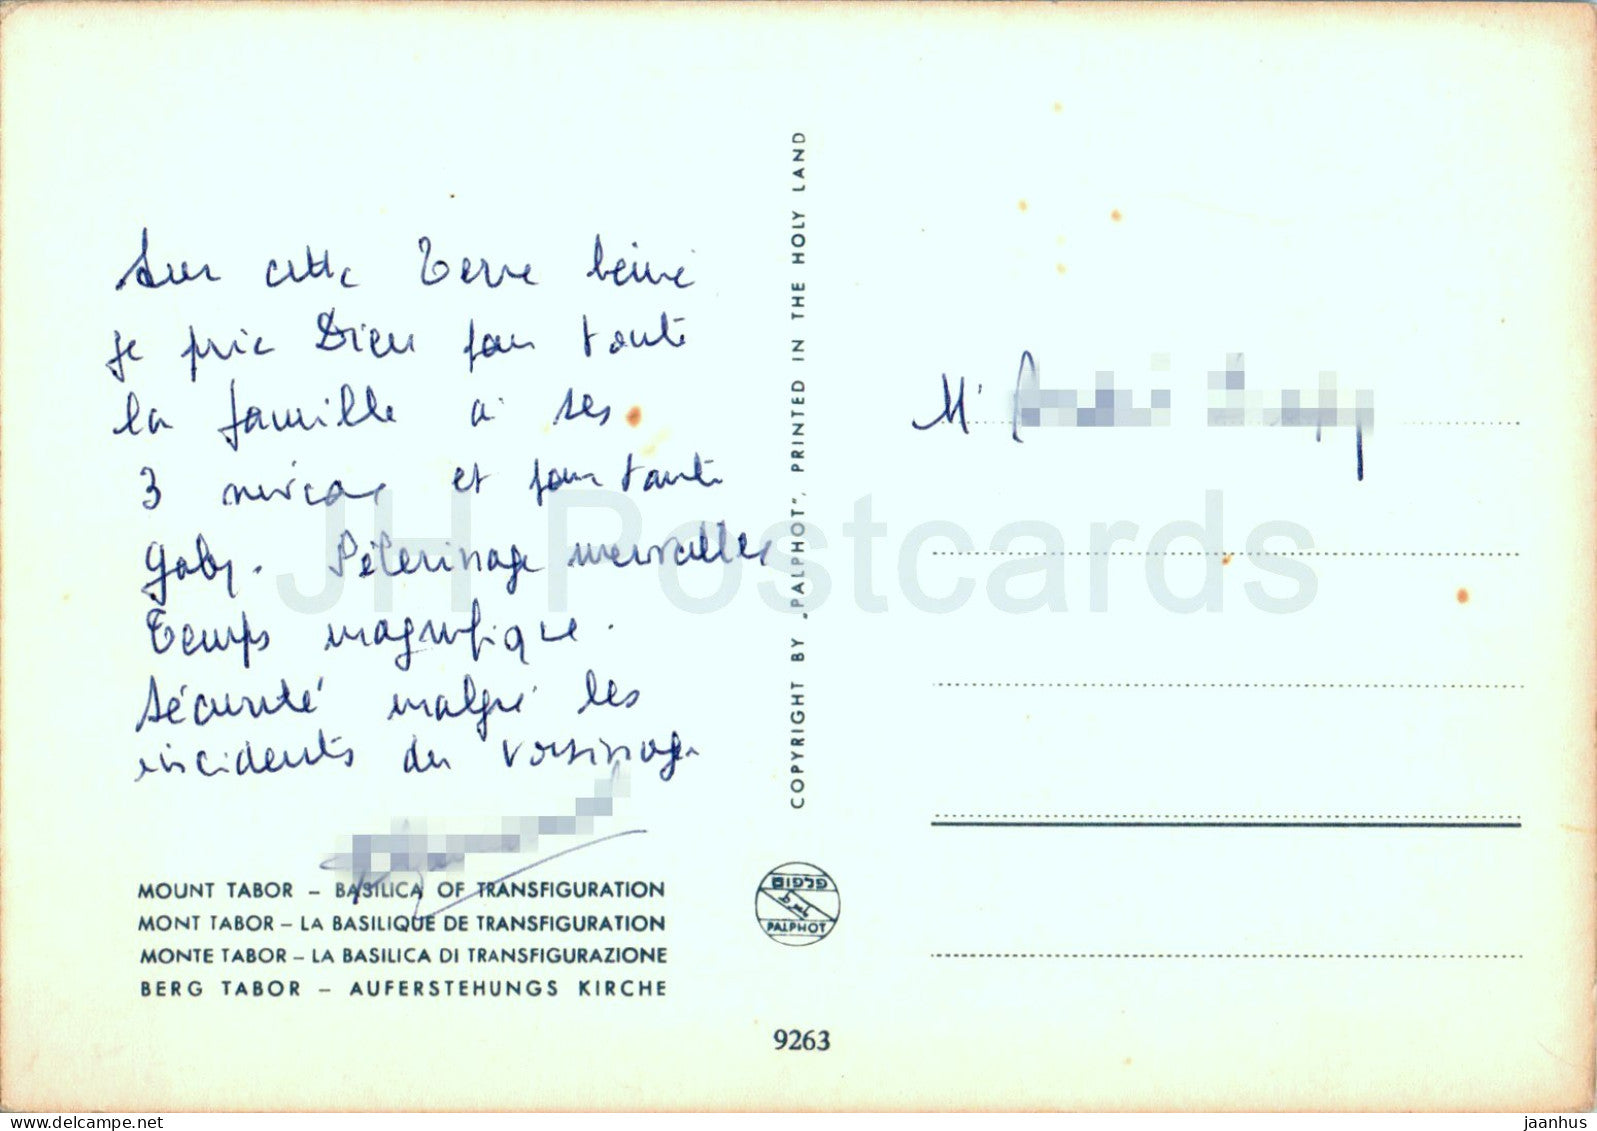 Sur cette Terre bénie
je prie Dieu pour toute
la famille à ses
3 et pour tante
Gaby. Pèlerinage merveilles
Temps magnifique.
Sécurité malgré les
incidents du voisinage
MOUNT TABOR – BASILICA OF TRANSFIGURATION
MONT TABOR – LA BASILIQUE DE TRANSFIGURATION
MONTE TABOR – LA BASILICA DI TRANSFIGURAZIONE
BERG TABOR – AUFERSTEHUNGS KIRCHE
COPYRIGHT BY „PALPHOT”, PRINTED IN THE HOLY LAND
פלפוט
PALPHOT
9263
M'
JH Postcards
www.delcampe.net
jaanhus